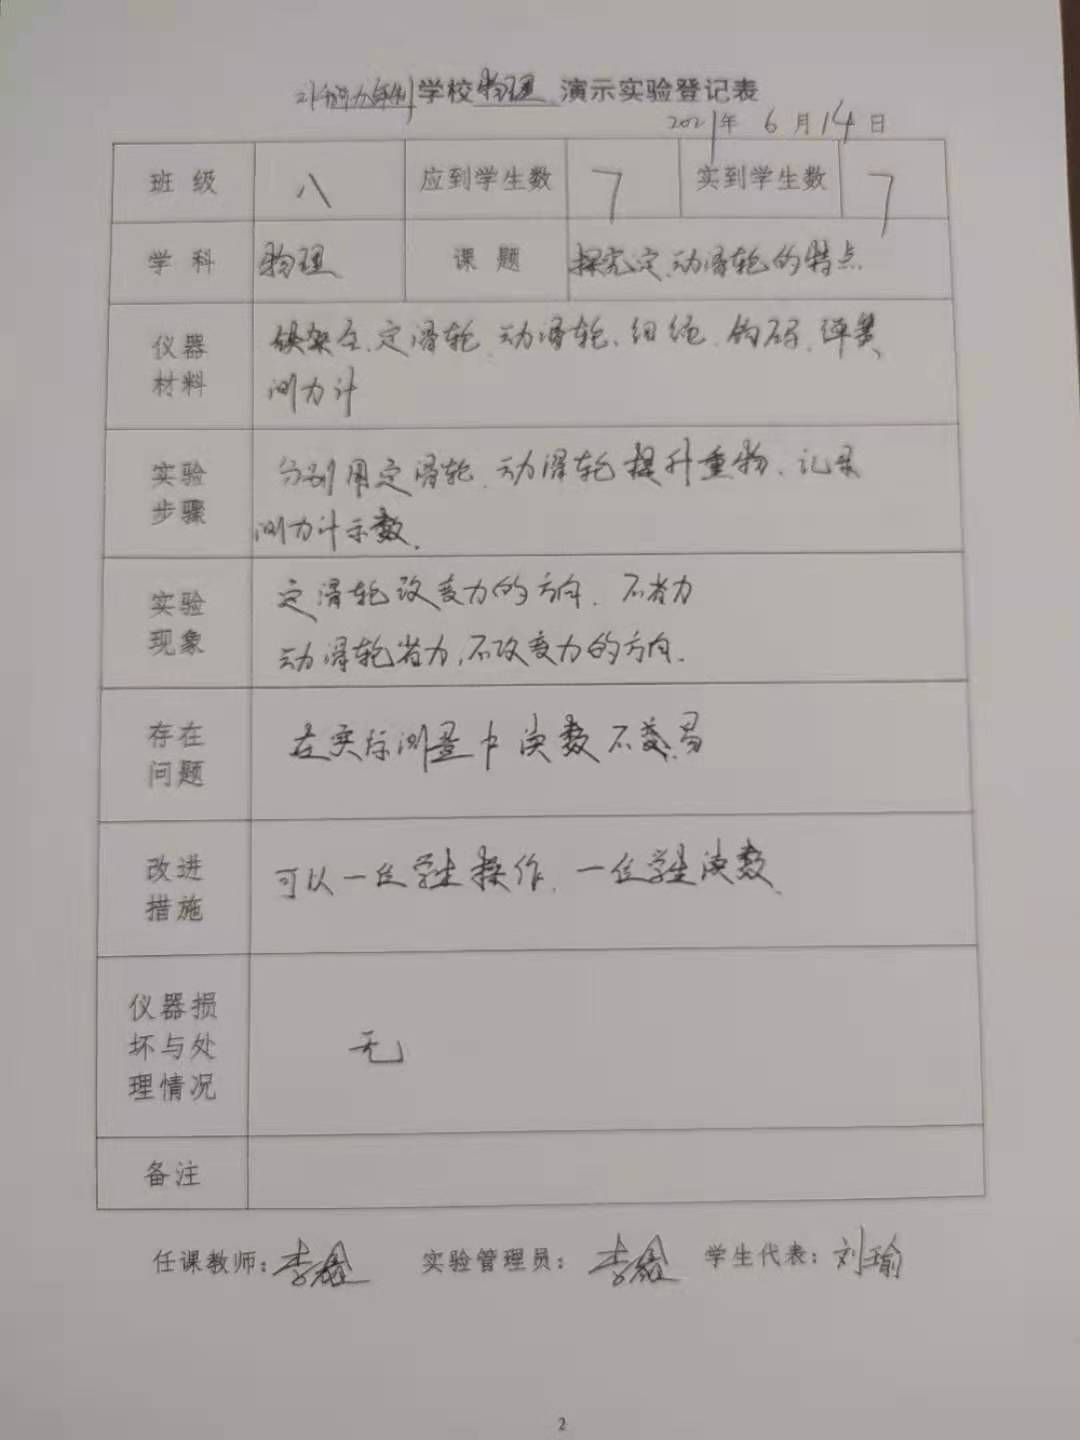 九年制学校物理演示实验登记表
2021年 6月14日
班级 八 应到学生数 7 实到学生数 7
学科 物理 课题 探究定、动滑轮的特点
仪器材料 铁架台、定滑轮、动滑轮、细绳、钩码、弹簧
测力计
实验步骤 分别用定滑轮、动滑轮提升重物、记录
测力计示数.
实验现象 定滑轮改变力的方向、不省力
动滑轮省力,不改变力的方向.
存在问题 在实际测量中读数不容易
改进措施 可以一位学生操作、一位学生读数.
仪器损坏与处理情况 无
备注
任课教师: 李 实验管理员: 李 学生代表: 刘瑜
2